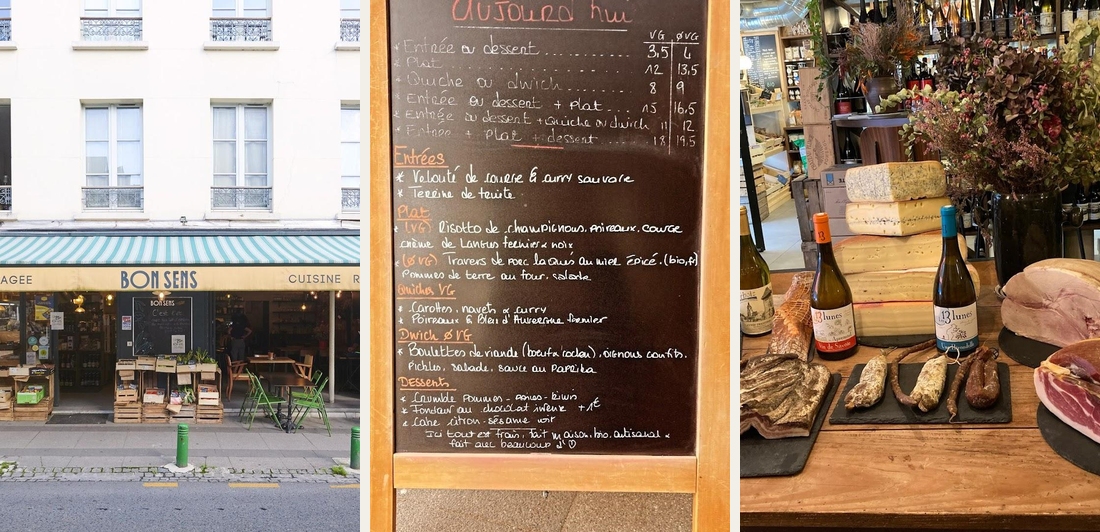 AGEE
BON SENS
CUISINE R
BON SENS
aujourd'hui
VG ØVG
* Entrée ou dessent ... 3,5 4
* Plat ... 12 13,5
* Quiche ou dwich ... 8 9
* Entrée ou dessent + plat ... 15 16,5
* Entrée ou dessent + Quiche ou dwich 11 12
* Entree + Plat + dessent ... 18 19,5
Entrées
* Velouté de courge & curry sauvage
* Terrine de truite.
Plat
* (VG) Risotto de champignons, Poireaux, courge
crème de Langres fermier & noix
* (ØVG) Travers de porc laquis au miel épicé. (bio, fr)
Pommes de terre au four. salade
Quiches VG
* Carottes, navets & curry
* Poireaux & Bleu d'Auvergne fermier
Dwich ØVG
* Boulettes de viande (boeuf & cochon), oignons confits,
Pichles, salade, sauce au Paprika
Desserts
* Crumble Pommes - poires - kiwis
* Fondant au chocolat +1€
* Cake citron - sésame noir
Ici tout est frais, fait maison, bio, artisanal &
fait avec beaucoup d'♡
13 lunes
13 lunes